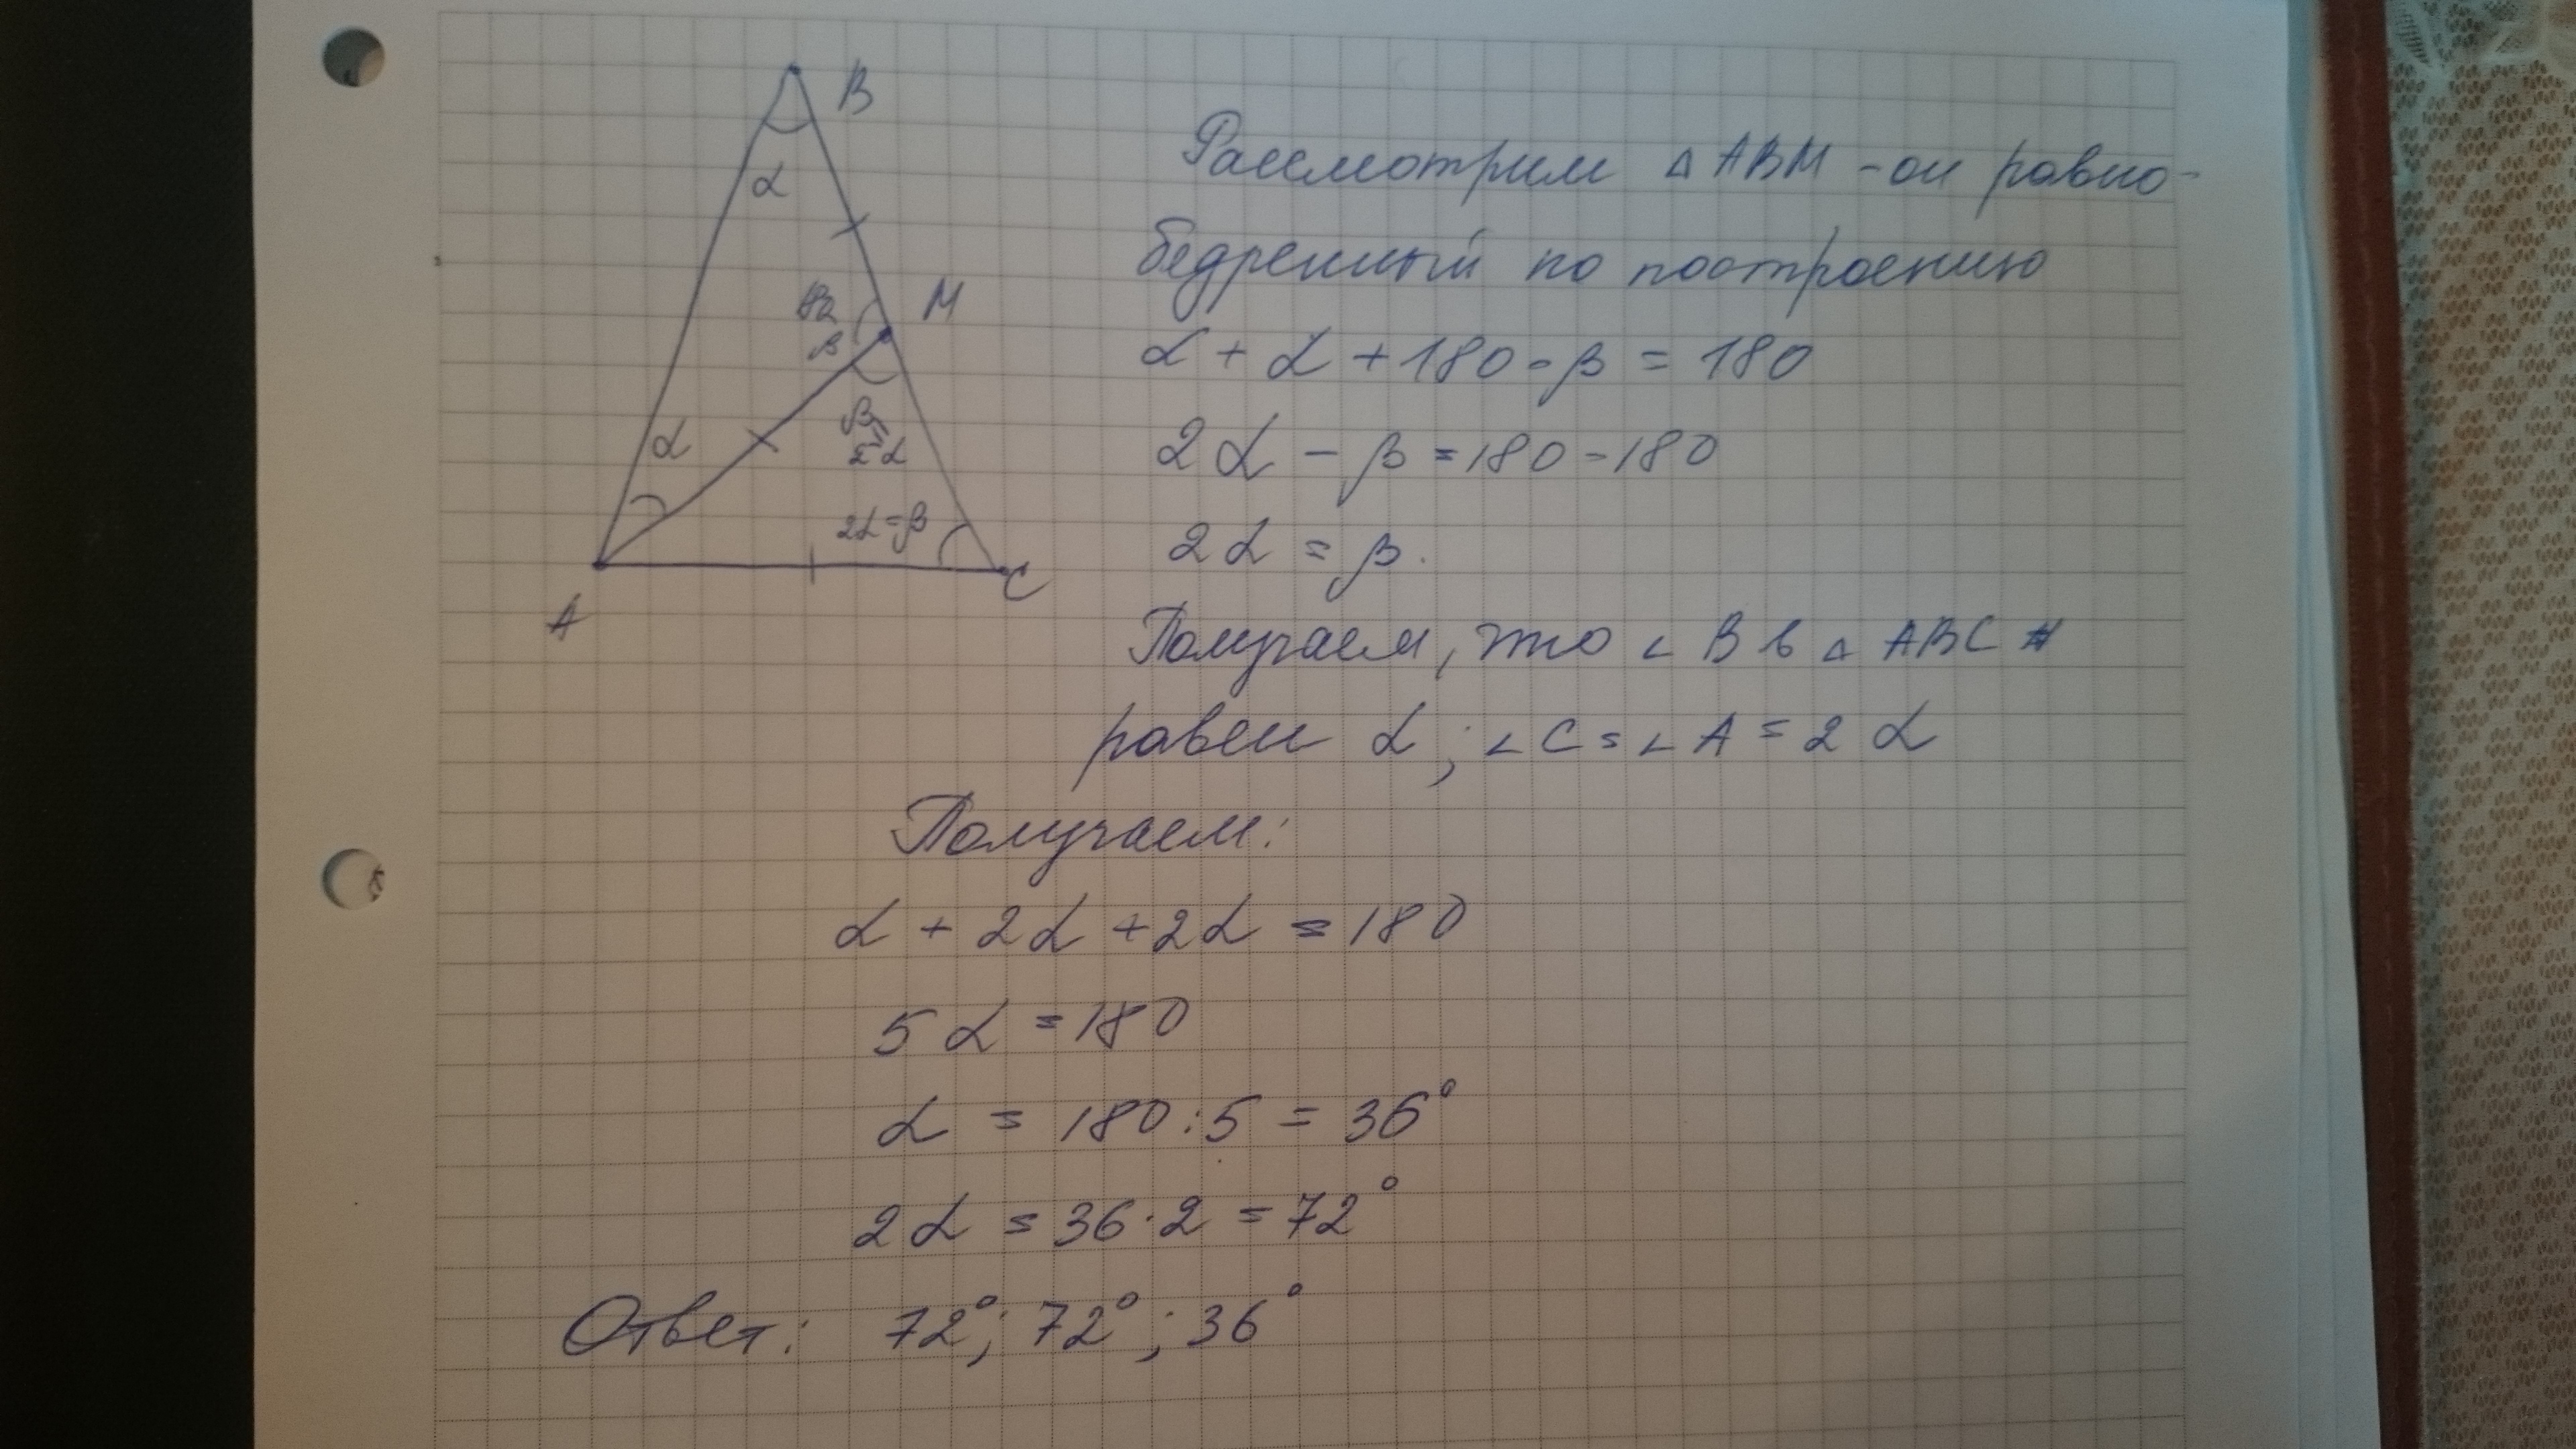 B
α
M
β
α
β =
2α
2α=β
A
C
Рассмотрим △ ABM - он равно-
бедренный по построению
α + α + 180 - β = 180
2α - β = 180 - 180
2α = β.
Получаем, что ∠ B в △ ABC
равен α; ∠ C = ∠ A = 2 α
Получаем:
α + 2α + 2α = 180
5 α = 180
α = 180 : 5 = 36°
2α = 36 · 2 = 72°
Ответ: 72°; 72°; 36°